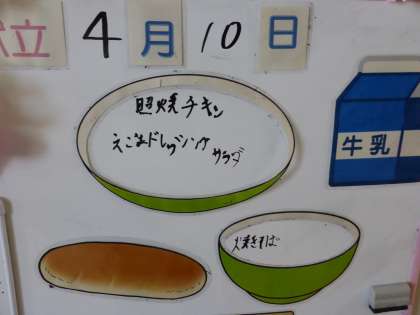 献立 4月10日
照焼チキン
えごまドレッシング
サラダ
牛乳
焼きそば